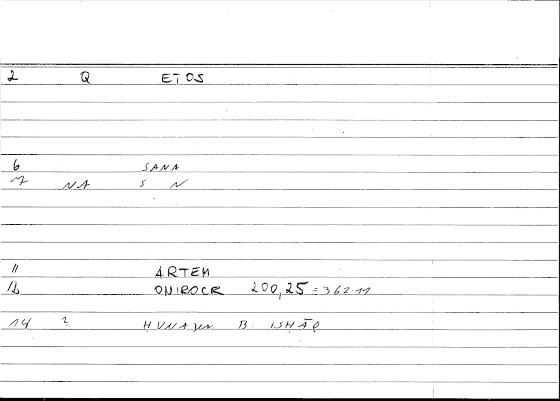 2 Q ETOS
6 SANA
NA S N
11 ARTEM
12 ONIROCR 200,25 = 362-11
14 ? HUNAYN B. ISHĀQ